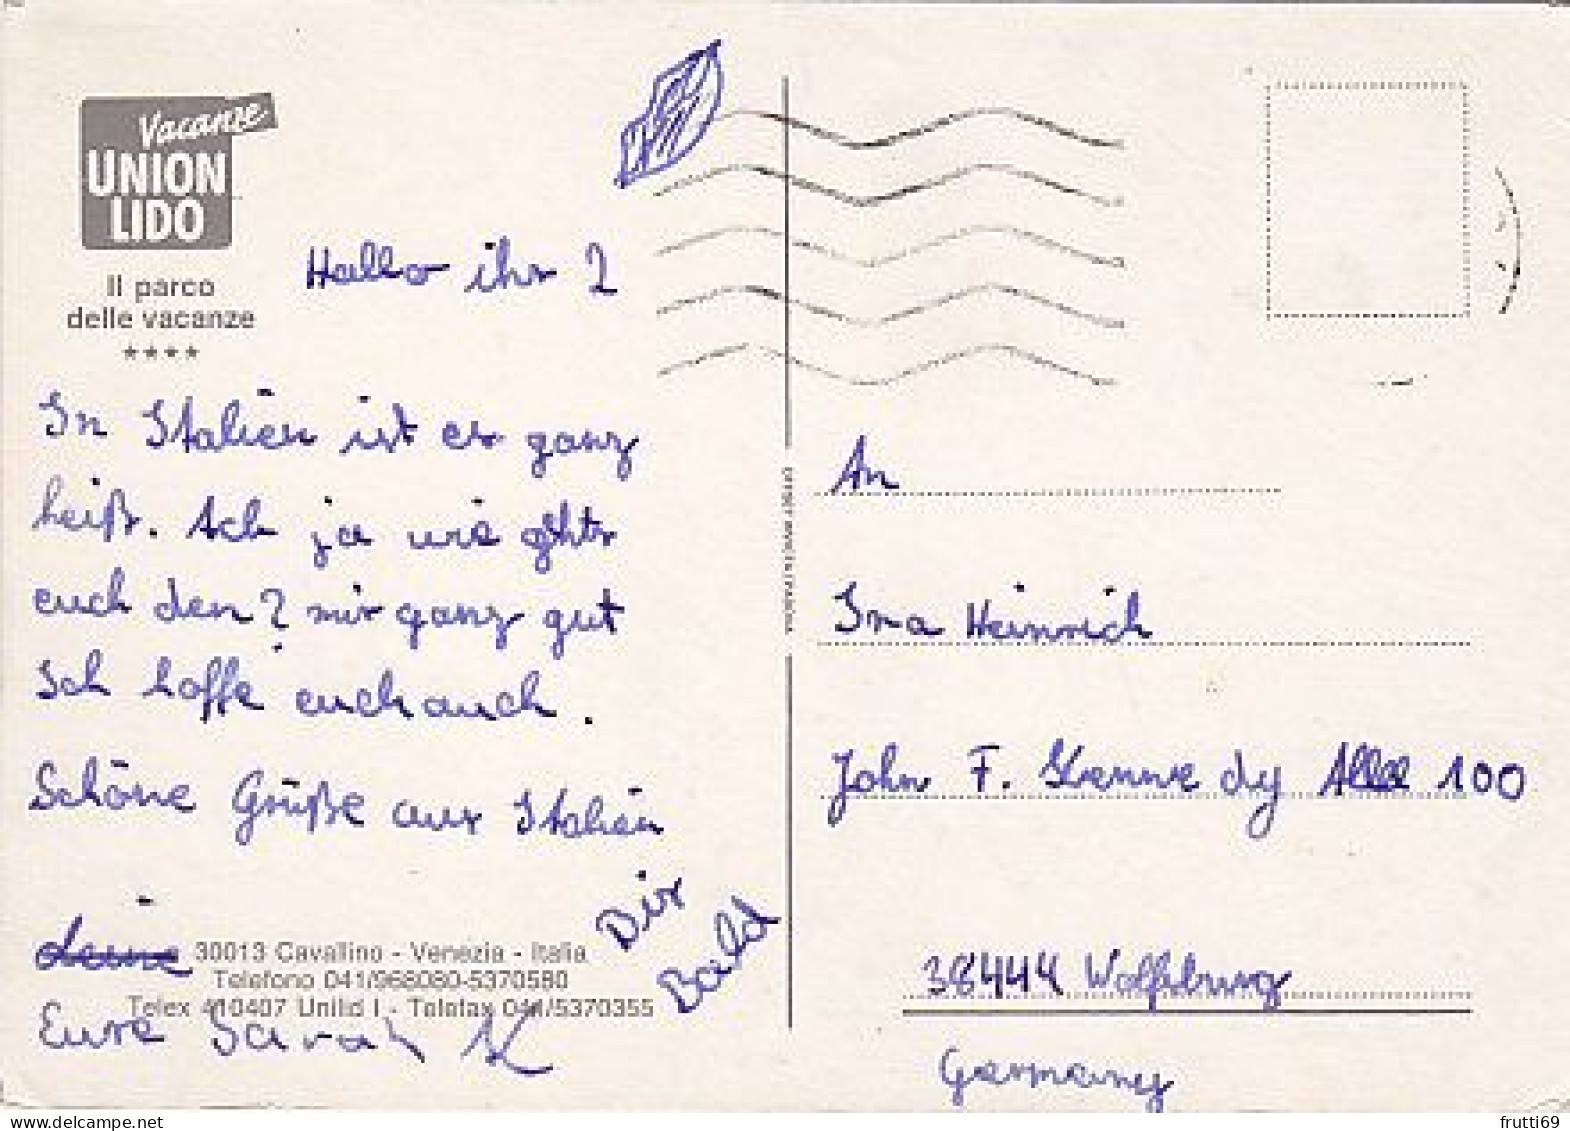 Vacanze
UNION
LIDO
Il parco
delle vacanze
****
Hallo ihr 2
In Italien ist es ganz
heiß. Ach ja wie gehts
euch den? mir ganz gut
Ich hoffe euch auch.
Schöne Grüße aus Italien
deine
Eure Sarah K
Bis
Bald
30013 Cavallino - Venezia - Italia
Telefono 041/968080-5370580
Telex 410407 Unilid I - Telefax 041/5370355
An
Ina Heinrich
John F. Kenne dy Allee 100
38444 Wolfsburg
Germany
frutti69